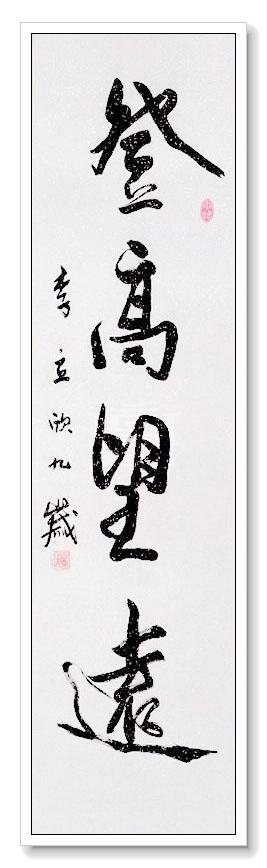 登高望遠
李立欧九歲